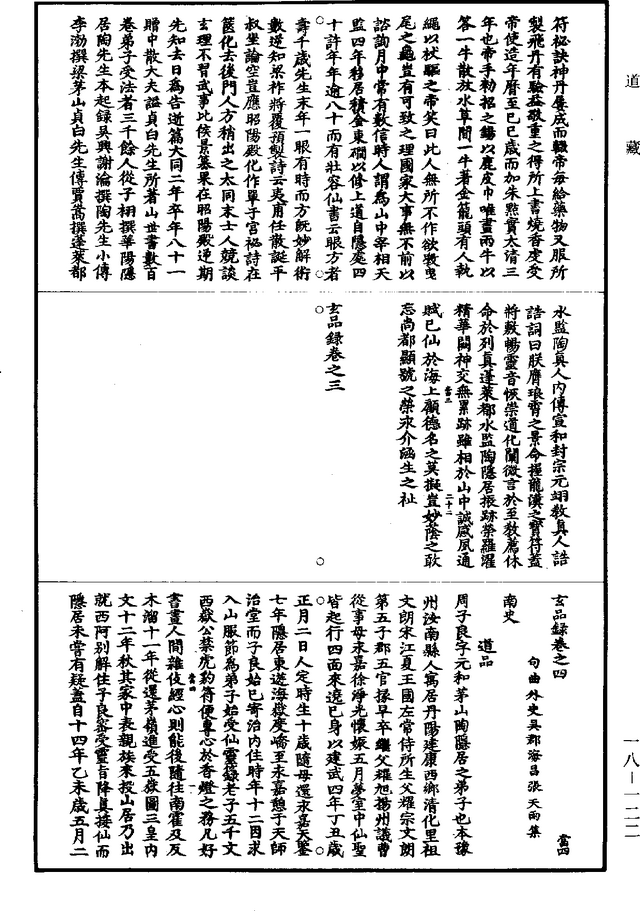 道藏
符祕訣神丹屢成而輙帝每給藥物又服所
製飛丹有驗益敬重之得所上書燒香虔受
帝使造年曆至己巳歲而加朱點實太清三
年也帝手勑招之錫以鹿皮巾唯畫兩牛以
答一牛散放水草間一牛著金籠頭有人執
繩以杖驅之帝笑曰此人無所不作欲斆曳
尾之龜豈有可致之理國家大事無不前以
諮詢月中常有數信時人謂為山中宰相天
監四年移居積金東㵎以修上道自隱處四
十許年年逾八十而有壯容仙書云眼方者
壽千歲先生末年一眼有時而方旣妙解術
數逆知梁祚將覆預製詩云夷甫任散誕平
叔坐論空豈應昭陽殿化作單于宮祕詩在
篋化去後門人方稍出之大同末士人競談
玄理不習武事比侯景簒果在昭陽殿逆期
先知去日為告逝篇大同二年卒年八十一
贈中散大夫謚貞白先生所著山世書數百
卷弟子受法者三千餘人從子栩撰華陽隱
居陶先生本起録吳興謝瀹撰陶先生小傳
李渤撰梁茅山貞白先生傳賈嵩撰蓬萊都
水監陶真人內傳宣和封宗元翊教真人誥
誥詞曰朕膺琅霄之景命握龍漢之寳符蓋
將敷暢靈音恢崇道化闡微言於至教薦休
命於列真蓬萊都水監陶隱居振跡榮羅濯
精華闕神交無累跡雖相於山中誠感夙通
賦已仙於海上顧德名之莫擬豈妙蔭之敢
忘尚都顯號之榮永介涵生之祉
玄品録卷之三
當三
二十二
玄品録卷之四
當四
句曲外史吳郡海昌張天雨集
南史
道品
周子良字元和茅山陶隱居之弟子也本豫
州汝南縣人寓居丹陽建康西鄉清化里祖
文朗宋江夏王國左常侍所生父耀宗文朗
第五子郡五官掾早卒繼父耀旭揚州議曹
從事母永嘉徐淨光懷娠五月夢室中仙聖
皆起行四面來遶己身以建武四年丁丑歲
正月二日人定時生十歲隨母還永嘉天鑒
七年隱居東遊海嶽度嶠至永嘉憩子天師
治堂而子良始已寄治內住時年十二因求
入山服節為弟子始受仙靈籙老子五千文
西嶽公禁虎豹符便專心於香燈之務凡好
書畫人間雜伎經心則能後隨往南霍及反
當四
一
木溜十一年從還茅嶺進受五嶽圖三皇內
文十二年秋其家中表親族來投山居乃出
就西阿別解住子良密受靈旨降真接仙而
隱居未嘗有疑蓋自十四年乙未歲五月二
一八-一二二